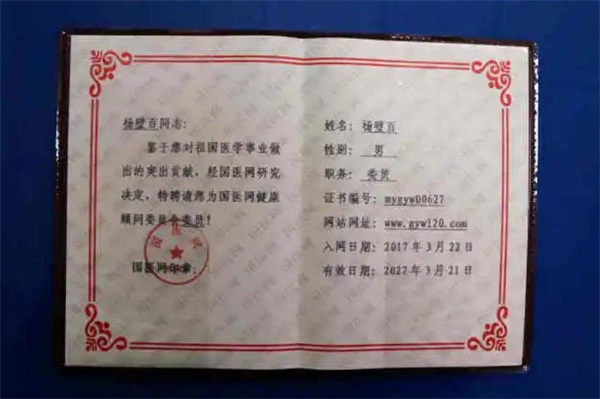 杨壁百同志:
鉴于您对祖国医学事业做
出的突出贡献，经国医网研究
决定，特聘请您为国医网健康
顾问委员会委员！
国医网
国医网年审:
姓名: 杨壁百
性别: 男
职务: 委员
证书编号: mygyw00627
网站网址: www.gyw120.com
入网日期: 2017年3月22日
有效日期: 2027年3月21日